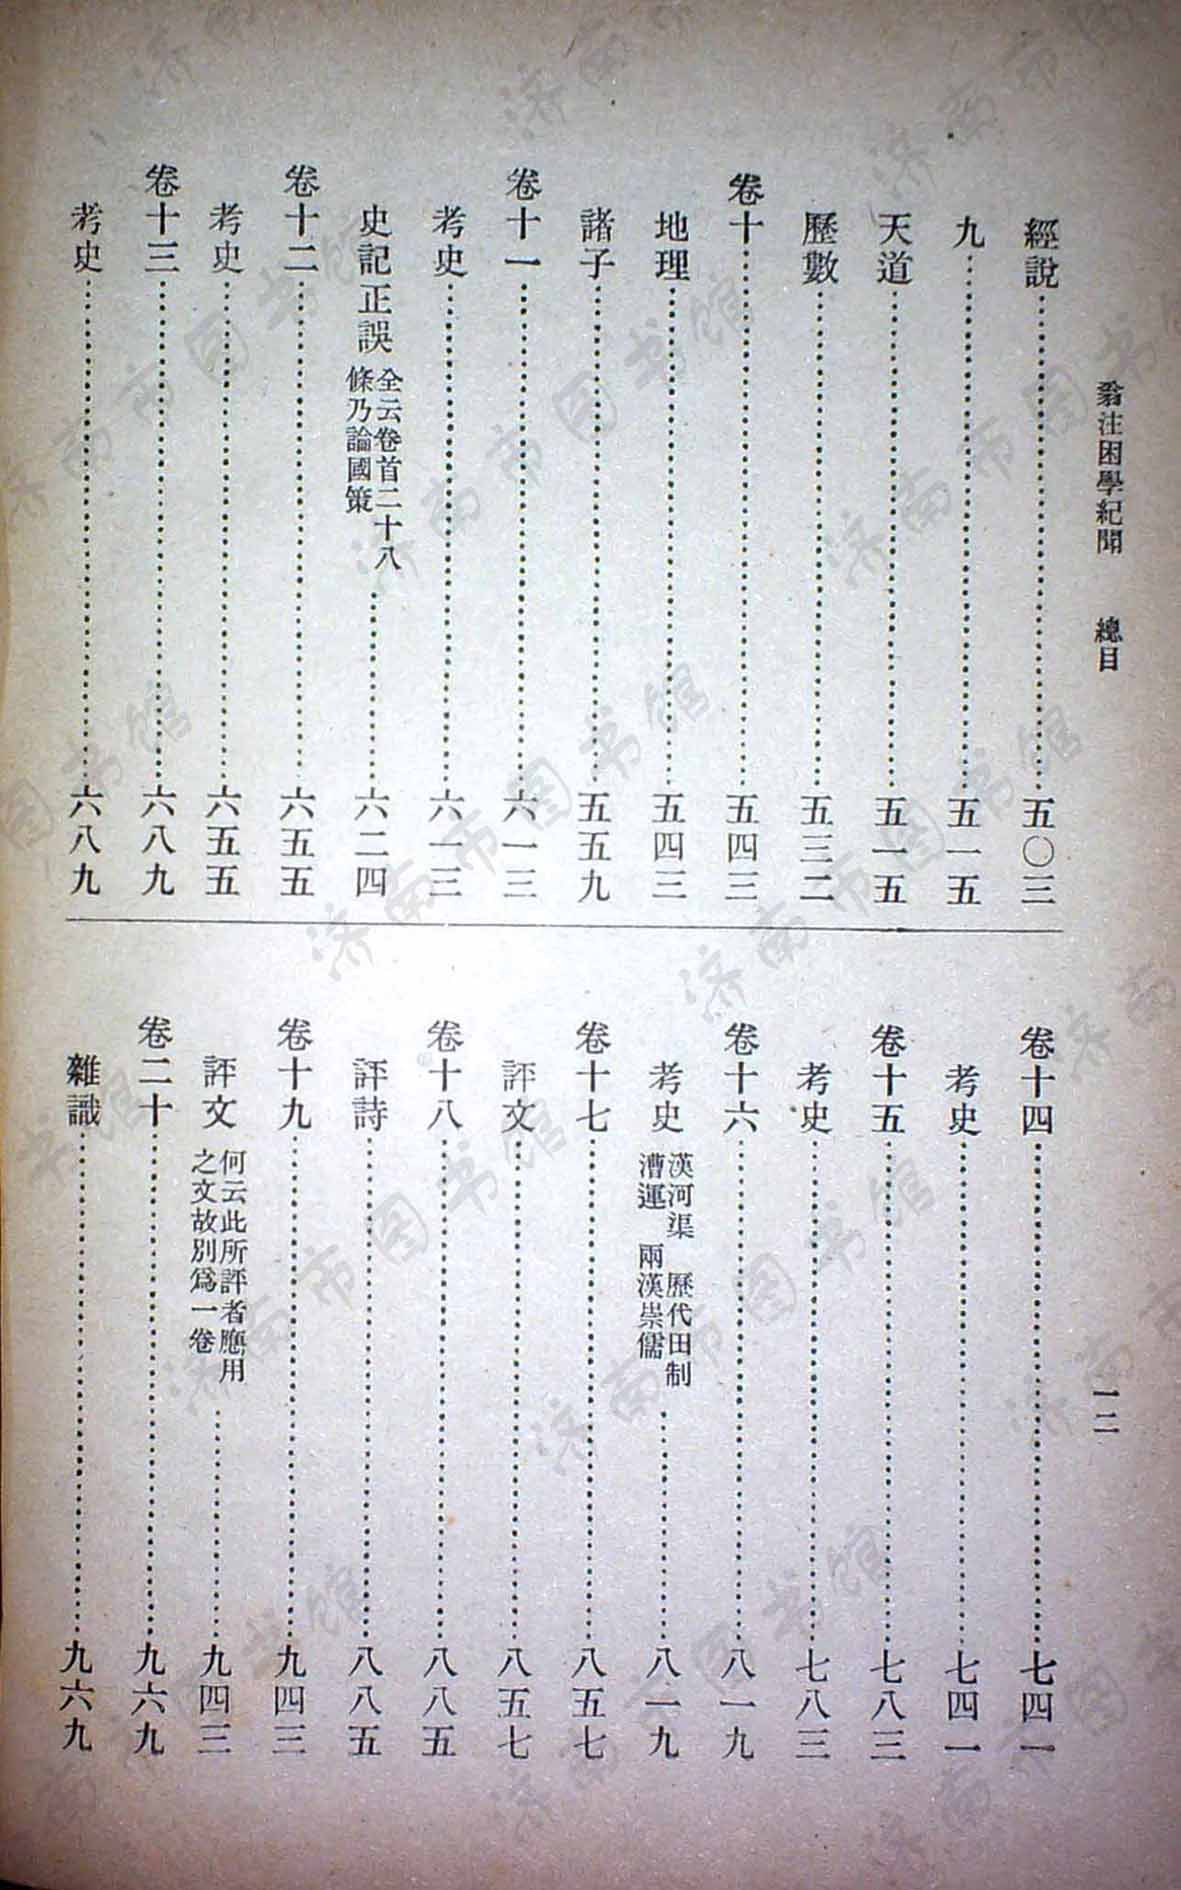 翁注困學紀聞 總目 一二
經說……五〇三
九……五一五
天道……五一五
歷數……五三二
卷十……五四三
地理……五四三
諸子……五五九
卷十一……六一三
考史……六一三
史記正誤 全云卷首二十八條乃論國策……六二四
卷十二……六五五
考史……六五五
卷十三……六八九
考史……六八九
卷十四……七四一
考史……七四一
卷十五……七八三
考史……七八三
卷十六……八一九
考史 漢河渠 歷代田制 漕運 兩漢崇儒……八一九
卷十七……八五七
評文……八五七
卷十八……八八五
評詩……八八五
卷十九……九四三
評文 何云此所評者應用之文故別爲一卷……九四三
卷二十……九六九
雜識……九六九
济南市图书馆